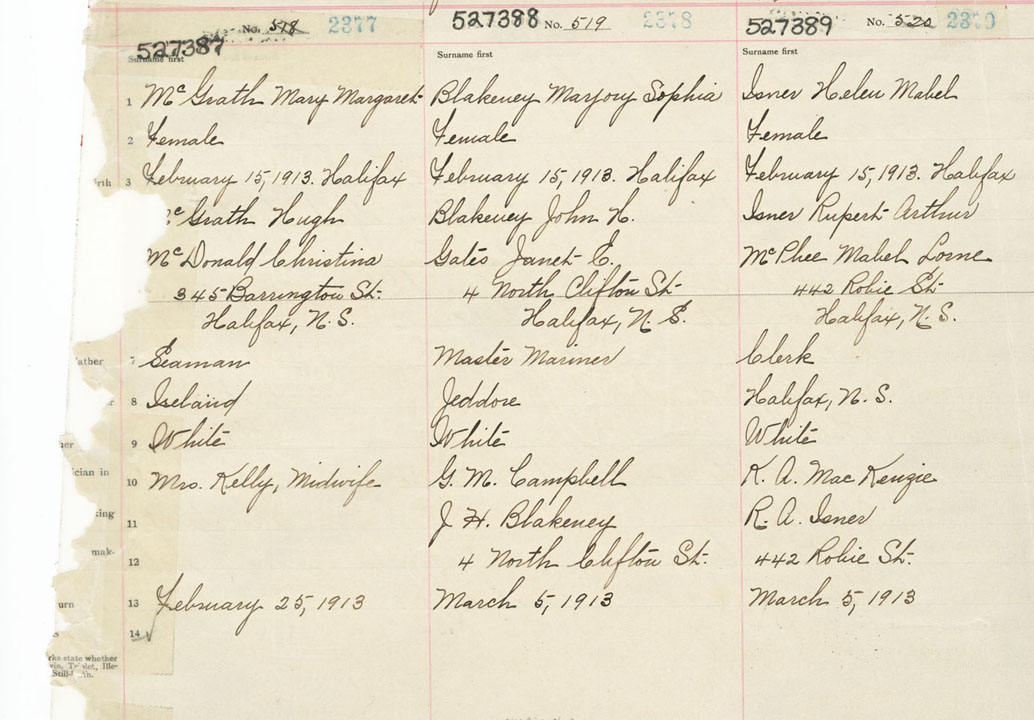 No. 518 2377 527388 No. 519 2378 527389 No. 520
527387
Surname first Surname first Surname first
1 McGrath Mary Margaret Blakeney Marjory Sophia Isner Helen Mabel
2 Female Female Female
rth 3 February 15, 1913. Halifax February 15, 1913. Halifax February 15, 1913. Halifax
Grath Hugh Blakeney John H. Isner Rupert Arthur
McDonald Christina Gates Janet E. McPhee Mabel Lorne
345 Barrington St. 4 North Clifton St. 442 Robie St.
Halifax, N.S. Halifax, N.S. Halifax, N.S.
ather 7 Seaman Master Mariner Clerk
8 Ireland Jeddore Halifax, N.S.
9 White White White
ician in 10 Mrs. Kelly, Midwife G. M. Campbell K. A. MacKenzie
king 11 J. H. Blakeney R. A. Isner
mak- 12 4 North Clifton St. 442 Robie St.
urn 13 February 25, 1913 March 5, 1913 March 5, 1913
14 ✓
rks state whether
win, Triplet, Ille-
Still-